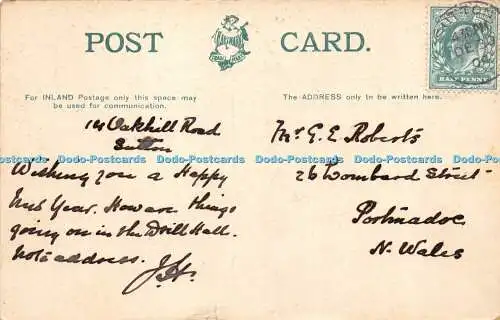 POST CARD.
For INLAND Postage only this space may
be used for communication.
The ADDRESS only to be written here.
HALF PENNY
14 Oakhill Road
Sutton
Wishing you a Happy
New Year. How are things
going on in the Drill Hall.
Note address.
Mr G. E. Roberts
26 Lombard Street
Portmadoc
N. Wales
Dodo-Postcards Dodo-Postcards Dodo-Postcards Dodo-Postcards Dodo-Postcards